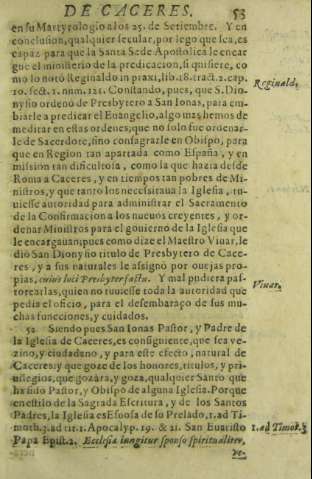 DE CACERES. 53
en su Martyrologio a los 25. de Setiembre. Y en
conclusion, qualquier secular, por lego que sea, es
capaz para que la Santa Sede Apostolica le encar
gue el ministerio de la predicacion, si quisiere, co
mo lo notò Reginaldo in praxi, lib. 18. tract. 2. cap.
10. sect. 2. num. 121. Constando, pues, que S. Dio-
nysio ordenò de Presbytero a San Ionas, para em-
biarle a predicar el Euangelio, algo mas hemos de
meditar en estas ordenes; que no solo fue ordenar-
le de Sacerdote, sino consagrarle en Obispo, para
que en Region tan apartada como España, y en
mission tan dificultosa, como la que hazia desde
Roma a Caceres, y en tiempos tan pobres de Mi-
nistros, y que tanto los necessitaua la Iglesia, tu-
uiesse autoridad para administrar el Sacramento
de la Confirmacion a los nueuos creyentes, y or-
denar Ministros para el gouierno de la Iglesia que
le encargauan; pues como dize el Maestro Viuar, le
diò San Dionysio titulo de Presbytero de Cace-
res, y a sus naturales le assignò por ouejas pro-
pias, cuius loci Presbyter factu. Y mal pudiera pas-
torearlas, quien no tuuiesse toda la autoridad que
pedia el oficio, para el desembaraço de sus mu-
chas funciones, y cuidados.
52 Siendo pues San Ionas Pastor, y Padre de
la Iglesia de Caceres, es consiguiente, que sea ve-
zino, y ciudadano, y para este efecto, natural de
Caceres: y que goze de los honores, titulos, y pri-
uilegios, que gozàra, y goza, qualquier Santo que
ha sido Pastor, y Obispo de alguna Iglesia. Porque
en estilo de la Sagrada Escritura, y de los Santos
Padres, la Iglesia es Esposa de su Prelado, 1. ad Ti-
moth. 3. ad tit. 1. Apocalyp. 19. & 21. San Euaristo
Papa Epist. 2. Ecclesia iungitur sponso spiritualiter,
Reginald.
Viuar.
1. ad Timot. 3